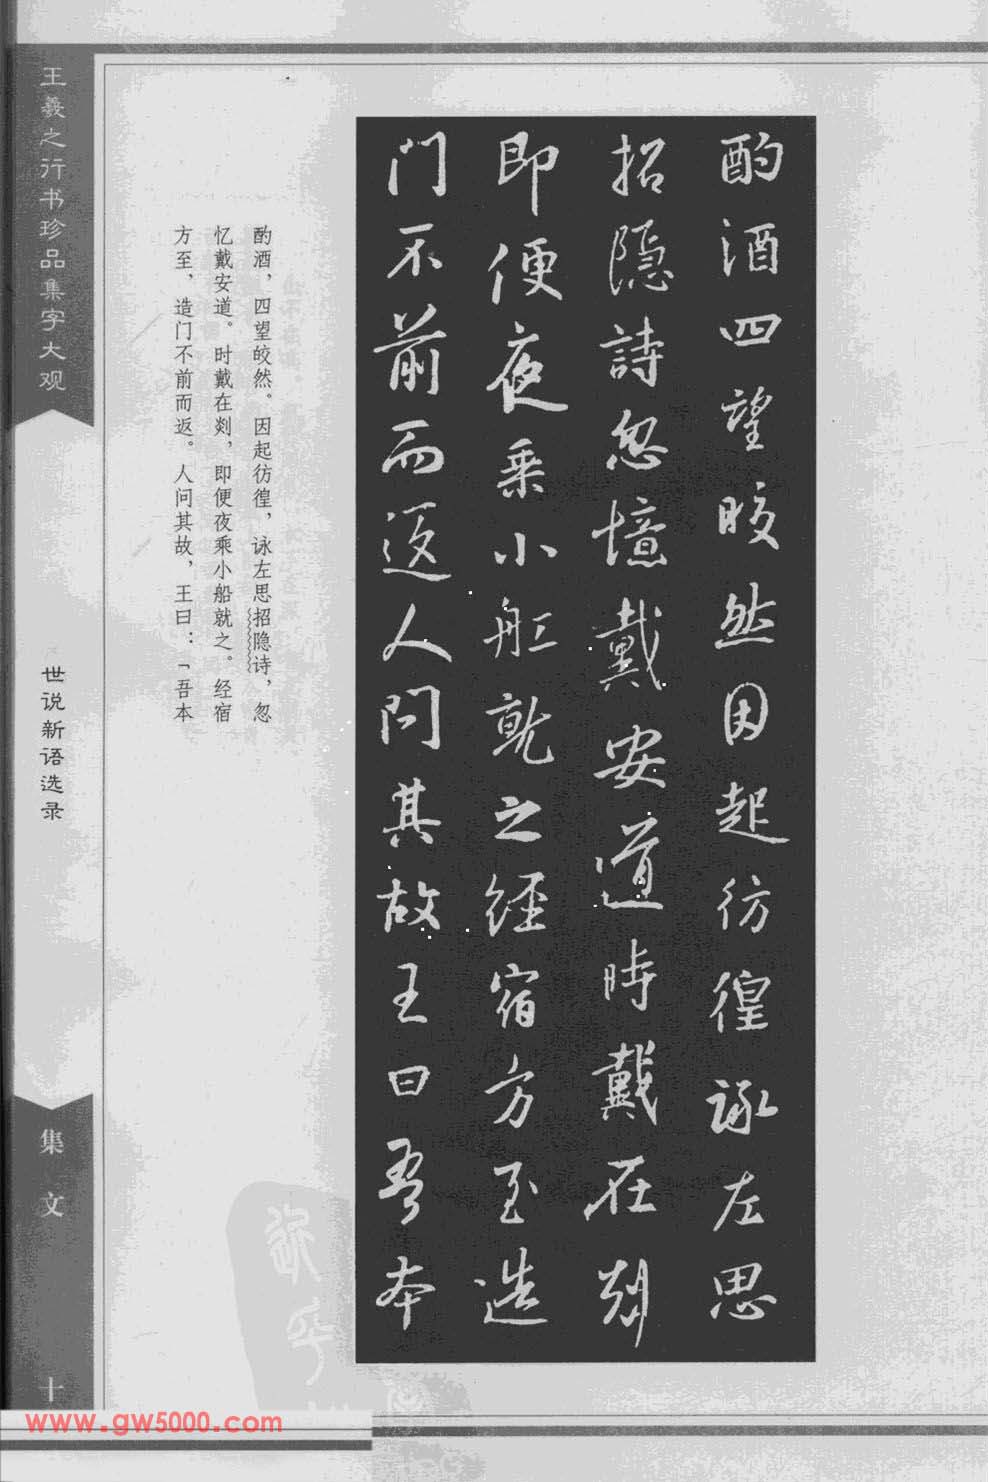 王羲之行书珍品集字大观
世说新语选录
集文
十
酌酒四望皎然因起彷徨詠左思
招隐詩忽憶戴安道時戴在剡
即便夜乘小舡就之經宿方至造
门不前而返人问其故王曰吾本
酌酒，四望皎然。因起彷徨，咏左思招隐诗，忽
忆戴安道。时戴在剡，即便夜乘小船就之。经宿
方至，造门不前而返。人问其故，王曰：「吾本
www.gw5000.com